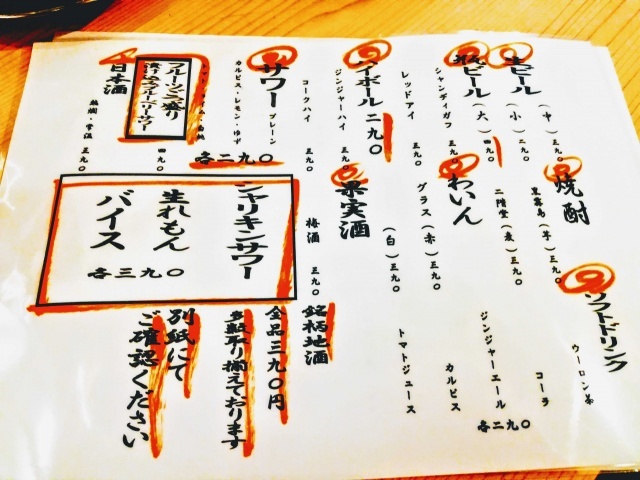 生ビール
(中)三九〇
(小)二九〇
瓶ビール
(大)四九〇
シャンディガフ 三九〇
レッドアイ 三九〇
ハイボール 二九〇
ジンジャーハイ 三九〇
コークハイ 三九〇
サワー
プレーン
カルピス・レモン・ゆず
各二九〇
フルーツごろ盛り
漬け込みブルーベリーサワー
四九〇
日本酒
熱燗・常温 三九〇
焼酎
黒霧島(芋)三九〇
二階堂(麦)三九〇
わいん
グラス(赤)三九〇
(白)三九〇
果実酒
梅酒 三九〇
シャリキンサワー
生れもん
バイス
各三九〇
ソフトドリンク
ウーロン茶
コーラ
ジンジャーエール
カルピス
トマトジュース
各二九〇
銘柄地酒
全品三九〇円
多数取り揃えております
別紙にて
ご確認ください